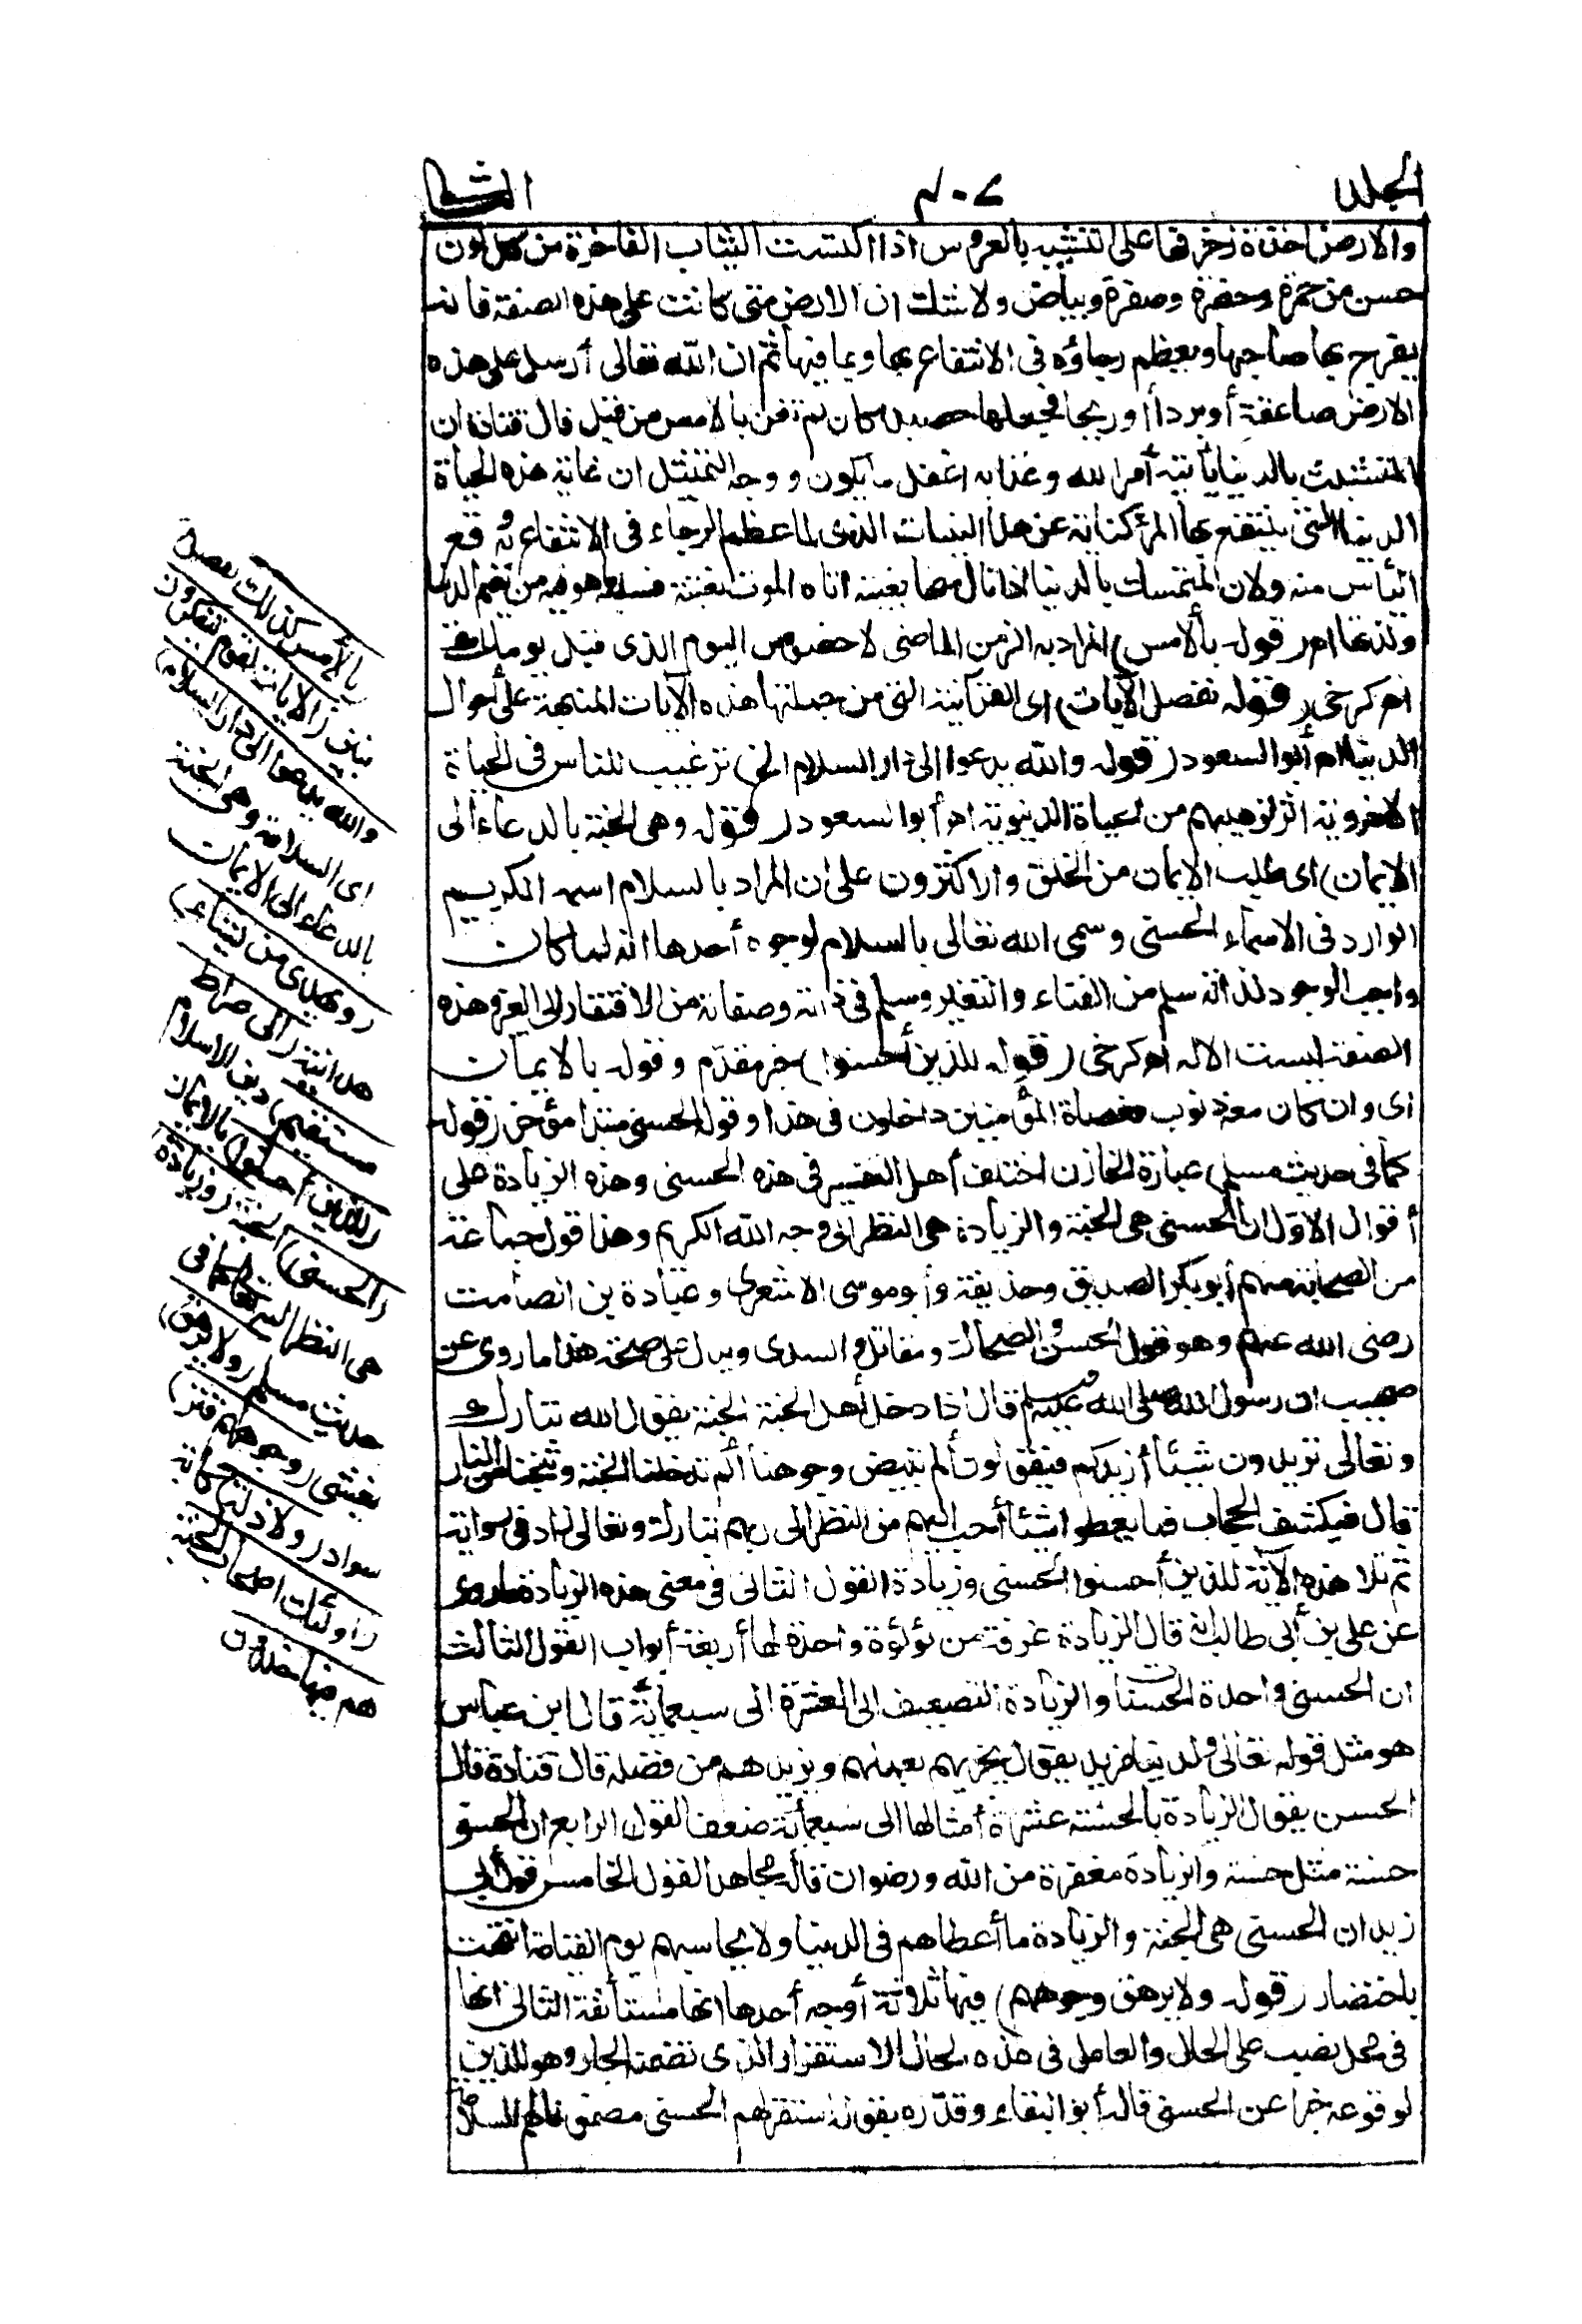 الجلد
٤٠٧
الثا
والارض آخذة زخرفها على التشبيه بالعروس اذا اكتست الثياب الفاخرة من كل لون
حسن من حمرة وخضرة وصفرة وبياض ولا شك ان الارض متى كانت على هذه الصفة فانه
يفرح بها صاحبها ويعظم رجاؤه فى الانتفاع بها وبما فيها ثم ان الله تعالى أرسل على هذه
الارض صاعقة أو بردا أو ريحا فجعلها حصيدا كان لم تغن بالامس من قبل قال قتادة ان
المتشبث بالدنيا يأتيه أمر الله وعذابه اغفل ما يكون ووجه التمثيل ان غاية هذه الحياة
الدنيا التى ينتفع بها المرء كناية عن هذا النبات الذى لما عظم الرجاء فى الانتفاع به وقع
اليأس منه ولان المتمسك بالدنيا اذا نال منها بغيته اتاه الموت بغتة فسلبه ما هو فيه من نعيم الدنيا
ولذتها اهـ (قوله بالأمس) المراد به الزمن الماضى لا خصوص اليوم الذى قبل يومك
اهـ كرخى (قوله نفصل الآيات) اى القرآنية التى من جملتها هذه الآيات المنبهة على أحوال
الدنيا اهـ أبو السعود (قوله والله يدعوا الى دار السلام الخ) ترغيب للناس فى الحياة
الاخروية اثر ترهيبهم من الحياة الدنيوية اهـ أبو السعود (قوله وهى الجنة بالدعاء الى
الايمان) اى طلب الايمان من الخلق والاكثرون على ان المراد بالسلام اسمه الكريم
الوارد فى الاسماء الحسنى وسمى الله تعالى بالسلام لوجوه أحدها انه لما كان
واجب الوجود لذاته سلم من الفناء والتغير وسلم فى ذاته وصفاته من الافتقار الى الغير وهذه
الصفة ليست الا له اهـ كرخى (قوله للذين أحسنوا) خبر مقدم وقوله بالايمان
اى وان كان معه ذنوب فعصاة المؤمنين داخلون فى هذا وقوله الحسنى مبتدا مؤخر (قوله
كما فى حديث مسلم) عبارة الخازن اختلف أهل التفسير فى هذه الحسنى وهذه الزيادة على
أقوال الاول ان الحسنى هى الجنة والزيادة هى النظر الى وجه الله الكريم وهذا قول جماعة
من الصحابة منهم أبو بكر الصديق وحذيفة وأبو موسى الاشعرى وعبادة بن الصامت
رضى الله عنهم وهو قول الحسن والضحاك ومقاتل والسدى ويدل على صحة هذا ما روى عن
صهيب ان رسول الله صلى الله عليه وسلم قال اذا دخل أهل الجنة الجنة يقول الله تبارك
وتعالى تريدون شيئا أزيدكم فيقولون ألم تبيض وجوهنا ألم تدخلنا الجنة وتنجنا من النار
قال فيكشف الحجاب فما يعطوا شيئا أحب اليهم من النظر الى ربهم تبارك وتعالى زاد فى رواية
ثم تلا هذه الآية للذين أحسنوا الحسنى وزيادة القول الثانى فى معنى هذه الزيادة ما روى
عن على بن أبى طالب انه قال الزيادة غرفة من لؤلؤة واحدة لها أربعة أبواب القول الثالث
ان الحسنى واحدة الحسنات والزيادة التضعيف الى العشرة الى سبعمائة قال ابن عباس
هو مثل قوله تعالى ولدينا مزيد يقول يجزيهم بعملهم ويزيدهم من فضله قال قتادة قال
الحسن يقول الزيادة بالحسنة عشرة أمثالها الى سبعمائة ضعف القول الرابع ان الحسنى
حسنة مثل حسنة والزيادة مغفرة من الله ورضوان قاله مجاهد القول الخامس قول أبى
زيد ان الحسنى هى الجنة والزيادة ما أعطاهم فى الدنيا ولا يحاسبهم يوم القيامة انتهت
باختصار (قوله ولا يرهق وجوههم) فيها ثلاثة أوجه أحدها انها مستأنفة الثانى انها
فى محل نصب على الحال والعامل فى هذه الحال الاستقرار الذى تضمنه الجار وهو للذين
لوقوعه خبرا عن الحسنى قاله أبو البقاء وقدره بقوله استقر لهم الحسنى مضمونا لهم السلامة
بالأمس كذلك نفصل
نبين (الآيات لقوم يتفكرون
والله يدعوا الى دار السلام)
اى السلامة وهى الجنة
بالدعاء الى الايمان
(ويهدى من يشاء)
هدايته (الى صراط
مستقيم) دين الاسلام
(للذين احسنوا) بالايمان
(الحسنى) الجنة (وزيادة)
هى النظر اليه تعالى كما فى
حديث مسلم (ولا يرهق)
يغشى (وجوههم قتر)
سواد (ولا ذلة) كآبة
(اولئك اصحاب الجنة
هم فيها خالدون